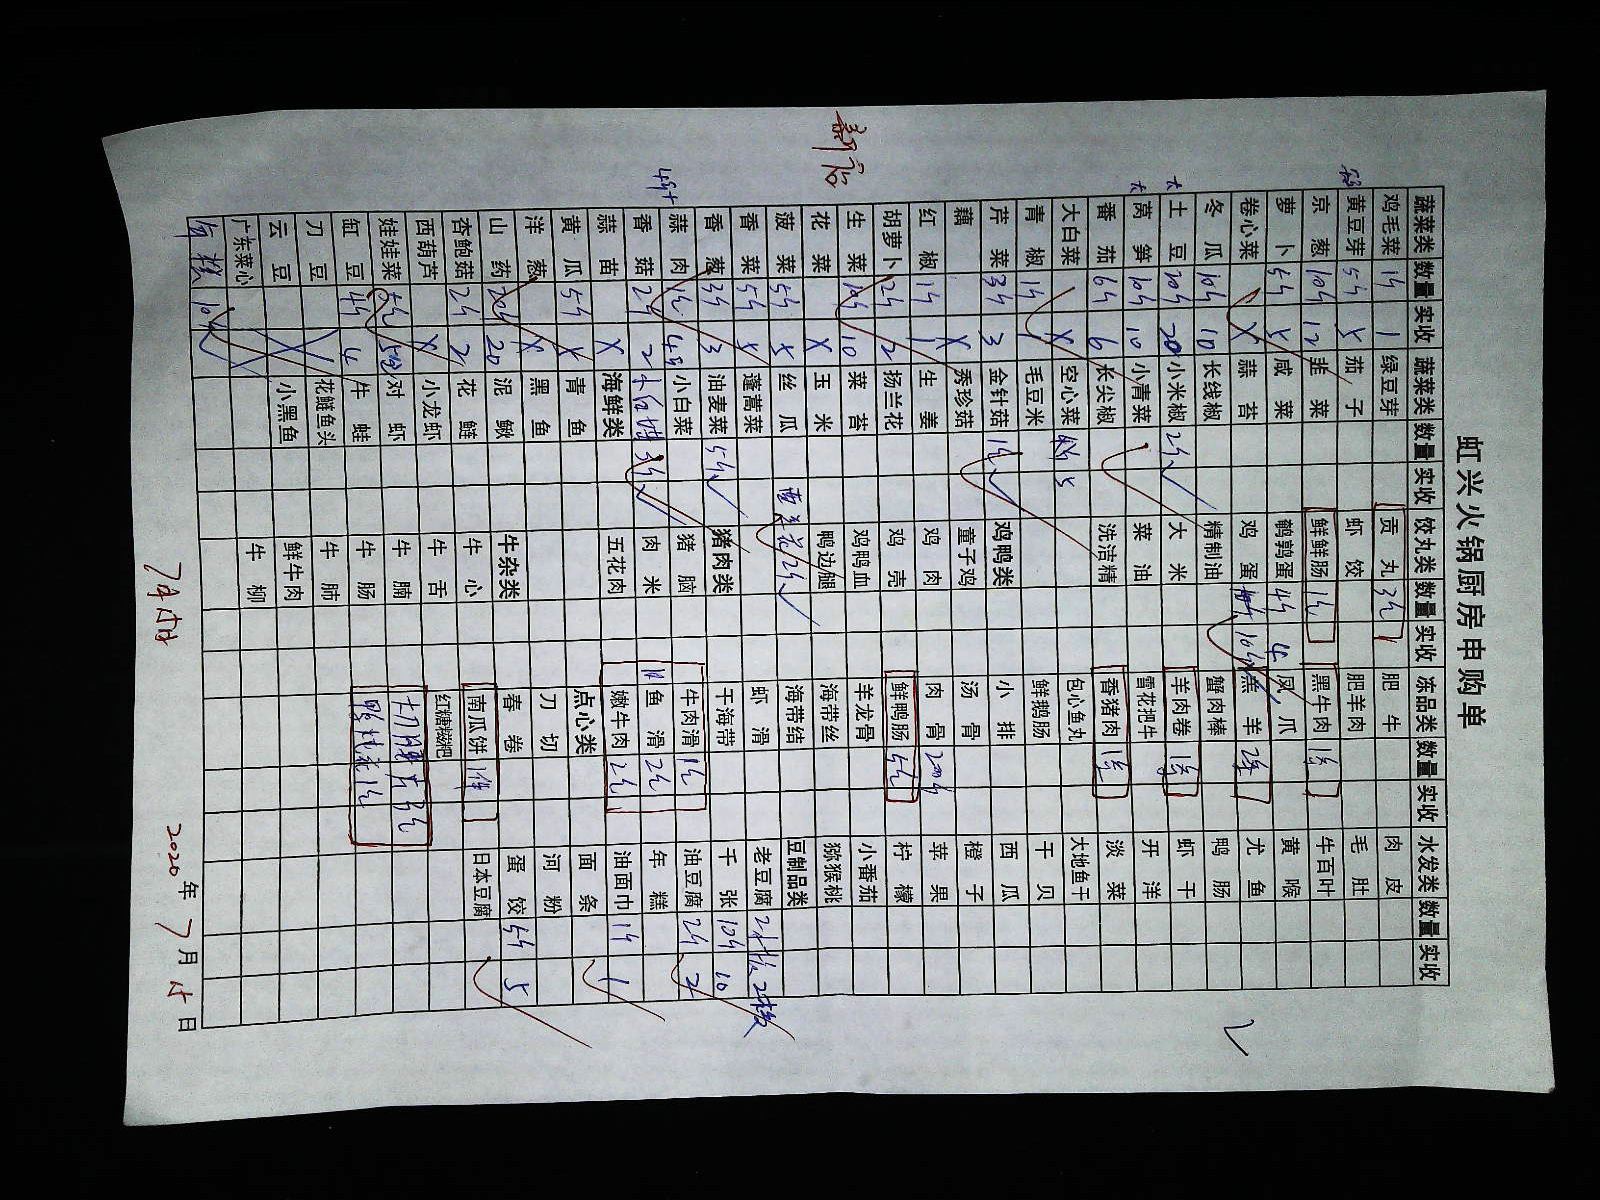 虹兴火锅厨房申购单
蔬菜类 数量 实收 蔬菜类 数量 实收 饮丸类 数量 实收 冻品类 数量 实收 水发类 数量 实收
鸡毛菜 1斤 1 绿豆芽 贡丸 3包 肥牛 肉皮
黄豆芽 5斤 5 茄子 虾饺 肥羊肉 毛肚
京葱 10斤 12 韭菜 鲜鲜肠 1包 黑牛肉 1 牛百叶
萝卜 5斤 5 咸菜 鹌鹑蛋 4斤 4 凤爪 黄喉
卷心菜 X 蒜苔 鸡蛋 10斤 羔羊 2 尤鱼
冬瓜 10斤 10 长线椒 精制油 蟹肉棒 鸭肠
大 土豆 20斤 20 小米椒 2斤 大米 羊肉卷 1 虾干
大 莴笋 10斤 10 小青菜 菜油 雪花把牛 开洋
番茄 6斤 6 长尖椒 洗洁精 香猪肉 1 淡菜
大白菜 X 空心菜 5 包心鱼丸 大地鱼干
青椒 1斤 1 毛豆米 鲜鹅肠 干贝
芹菜 3斤 3 金针菇 1包 鸡鸭类 小排 西瓜
藕 X 秀珍菇 童子鸡 汤骨 橙子
红椒 1斤 1 生姜 鸡肉 肉骨 20斤 苹果
胡萝卜 2斤 2 扬兰花 鸡壳 鲜鸭肠 5包 柠檬
生菜 10斤 10 菜苔 鸡鸭血 羊龙骨 小番茄
花菜 X 玉米 鸭边腿 海带丝 猕猴桃
菠菜 5斤 5 丝瓜 黄花2斤 海带结 豆制品类
香菜 5斤 5 蓬蒿菜 虾滑 老豆腐 2板 2板
香葱 3斤 3 油麦菜 5斤 猪肉类 干海带 千张 10斤 10
蒜肉 1包 小白菜 猪脑 牛肉滑 1包 油豆腐 2斤 2
香菇 2斤 2 肉米 鱼滑 2包 年糕
蒜苗 X 海鲜类 五花肉 嫩牛肉 2包 油面巾 1斤 1
黄瓜 5斤 5 青鱼 点心类 面条
洋葱 X 黑鱼 刀切 河粉
山药 20斤 20 泥鳅 牛杂类 春卷 蛋饺 5斤 5
杏鲍菇 2斤 2 花鲢 牛心 南瓜饼 1件 日本豆腐
西葫芦 X 小龙虾 牛舌 红糖糍粑
娃娃菜 5包 对虾 牛腩
缸豆 4斤 4 牛蛙 牛肠
刀豆 花鲢鱼头 牛肺
云豆 小黑鱼 鲜牛肉
广东菜心 牛柳
10斤
新店
2020年7月4日